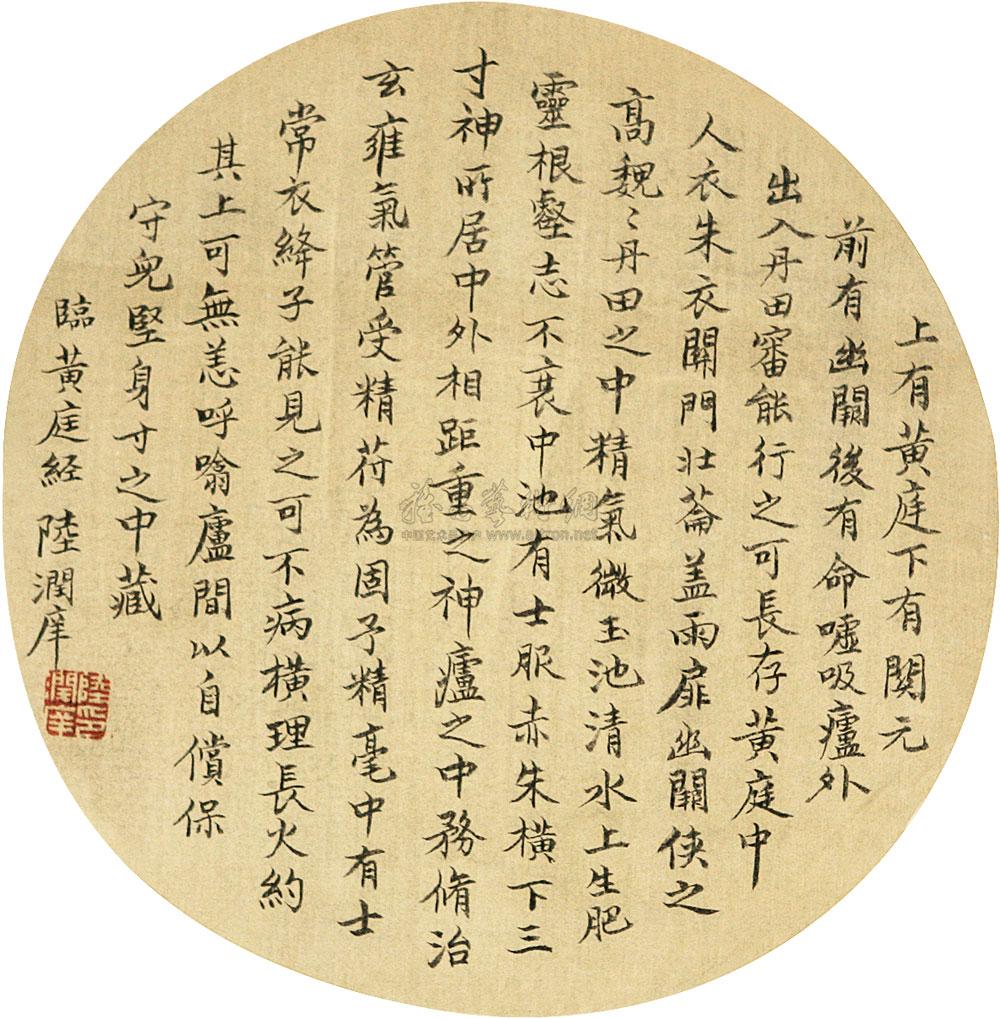 上有黄庭下有関元
前有幽闕後有命噓吸廬外
出入丹田審能行之可長存黄庭中
人衣朱衣関門壯蘥盖兩扉幽闕俠之
髙魏〻丹田之中精氣微玉池清水上生肥
靈根堅志不衰中池有士服赤朱橫下三
寸神所居中外相距重之神廬之中務脩治
玄雍氣管受精苻為固子精毫中有士
常衣絳子能見之可不病橫理長大約
其上可無恙呼噏廬間以自償保
守皃堅身寸之中藏
臨黄庭経 陸潤庠
陸印潤庠
中国艺术品网 www.artron.net